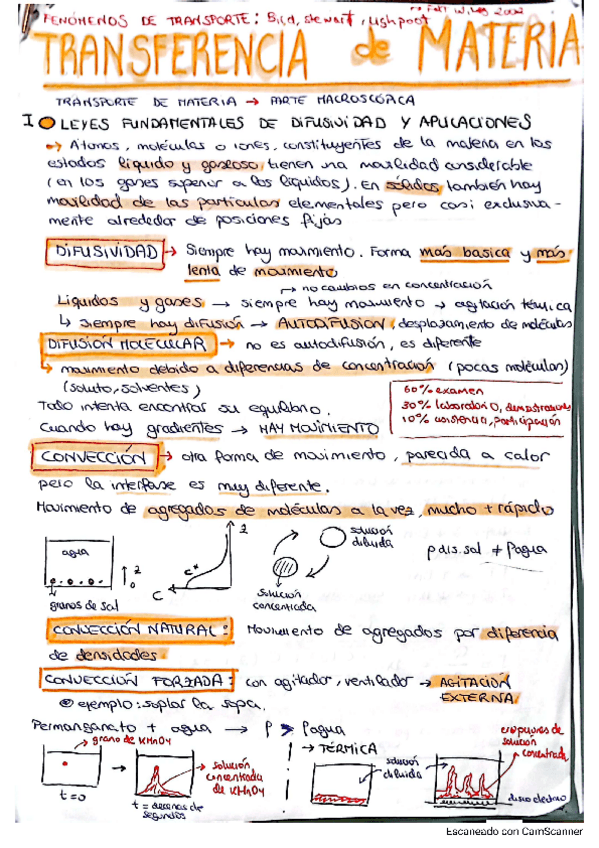 FENÓMENOS DE TRANSPORTE: Bird, Stewart, Lightfoot
2002
TRANSFERENCIA de MATERIA
TRANSPORTE DE MATERIA → PARTE MACROSCÓPICA
I LEYES FUNDAMENTALES DE DIFUSIVIDAD Y APLICACIONES
→ Átomos, moléculas o iones, constituyentes de la materia en los
estados líquido y gaseoso tienen una movilidad considerable
(en los gases superior a los líquidos). En sólidos también hay
movilidad de las partículas elementales pero casi exclusiva-
mente alrededor de posiciones fijas
DIFUSIVIDAD → Siempre hay movimiento. Forma mas basica y más
lenta de movimiento
→ no cambios en concentración
Líquidos y gases → siempre hay movimiento → agitación térmica
↳ siempre hay difusión → AUTODIFUSION, desplazamiento de moléculas
DIFUSIÓN MOLECULAR → no es autodifusión, es diferente
↳ movimiento debido a diferencias de concentración (pocas moléculas)
(soluto, solventes)
Todo intenta encontrar su equilibrio.
Cuando hay gradientes → HAY MOVIMIENTO
60% examen
30% laboratorio, demostraciones
10% asistencia, participación
CONVECCIÓN → otra forma de movimiento, parecida a calor
pero la interfase es muy diferente.
Movimiento de agregados de moléculas a la vez, mucho + rápido
agua
z
0
granos de sal
z
c*
C
solución
diluida
solución
concentrada
ρ dis. sal ≠ ρagua
CONVECCIÓN NATURAL: Movimiento de agregados por diferencia
de densidades
CONVECCIÓN FORZADA: con agitador, ventilador → AGITACIÓN
EXTERNA
ejemplo: soplar la sopa.
Permanganato + agua → ρ > ρagua
grano de KMnO4
t=0
solución
concentrada
de KMnO4
t = decenas de
segundos
→ TÉRMICA
solución
diluida
erupciones de
solución
concentrada
Escaneado con CamScanner